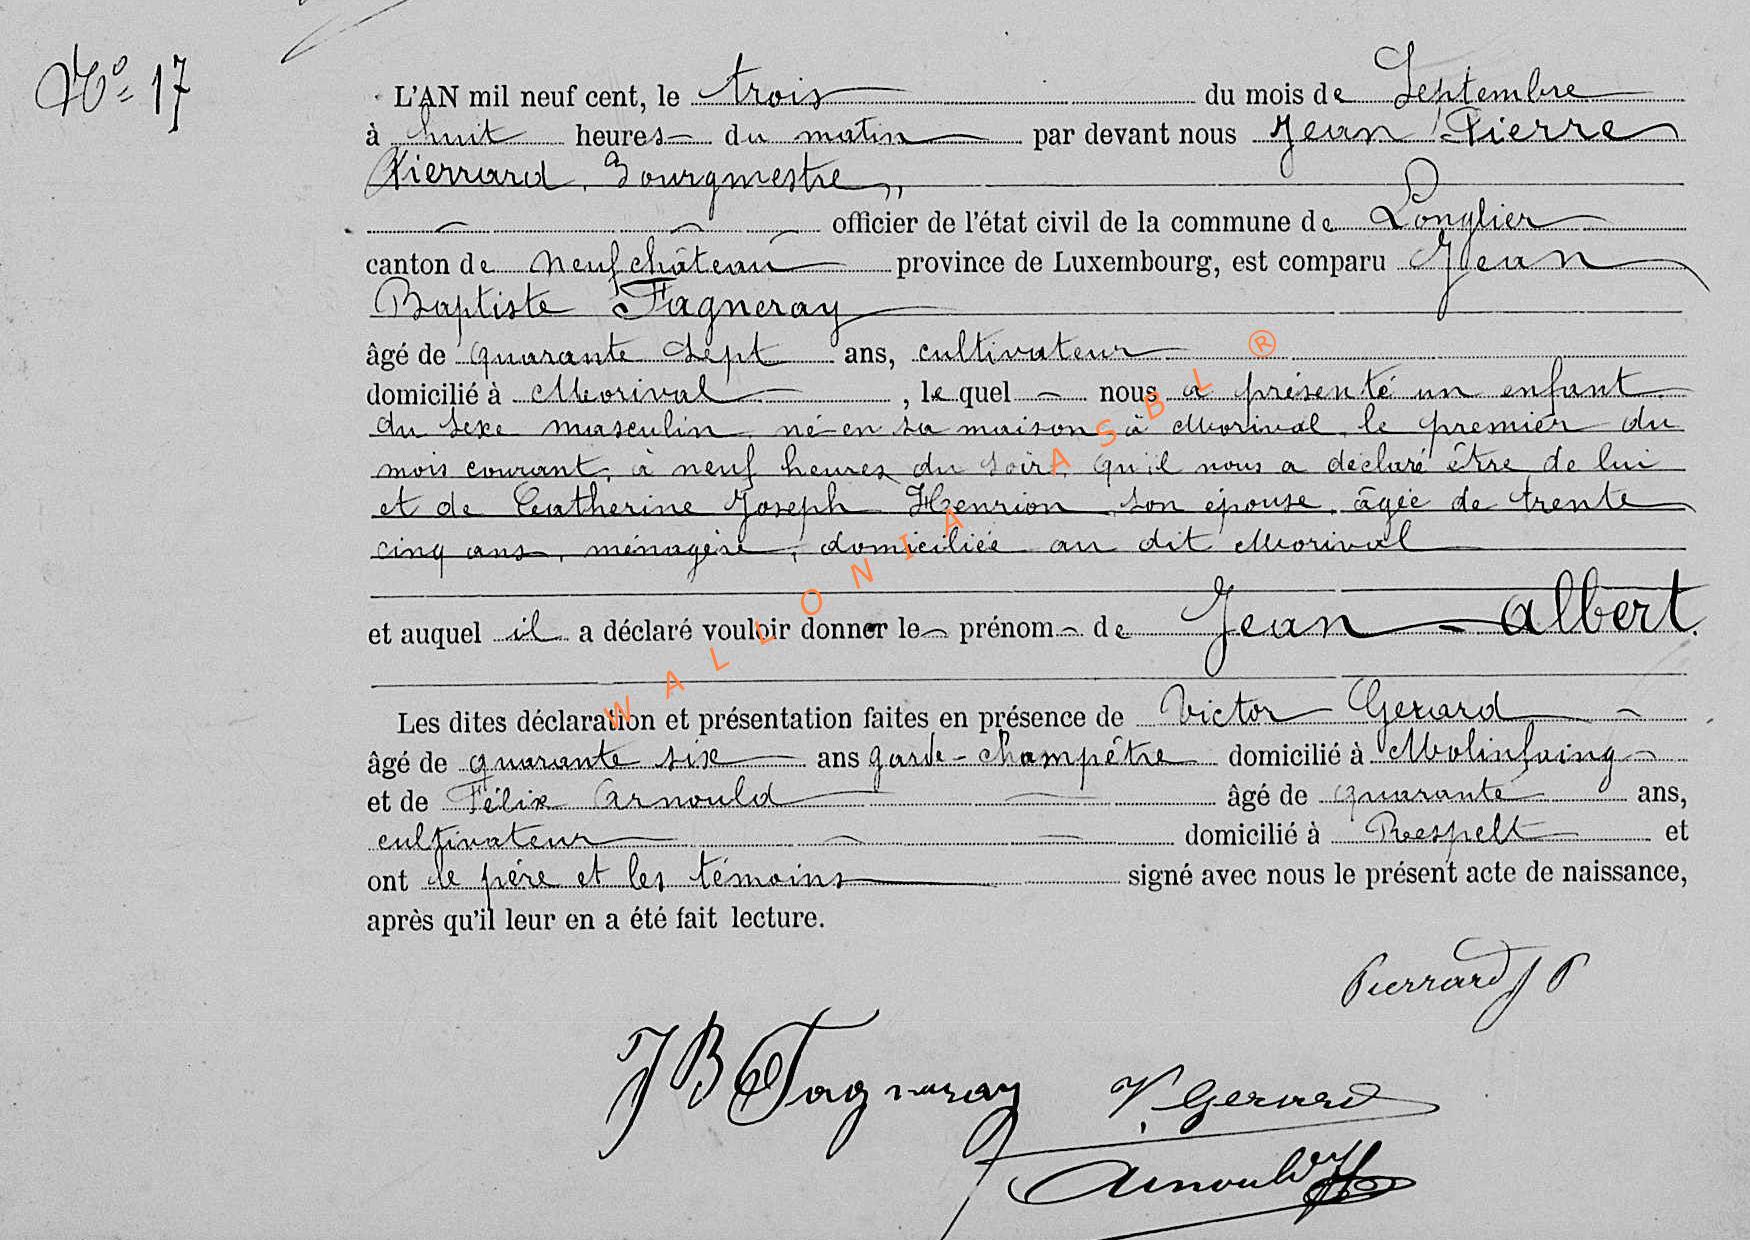 Nº 17
L'AN mil neuf cent, le trois du mois de Septembre
à huit heures du matin par devant nous Jean Pierre
Pierrard, Bourgmestre,
officier de l'état civil de la commune de Longlier
canton de Neufchâteau province de Luxembourg, est comparu Jean
Baptiste Fagneray
âgé de quarante sept ans, cultivateur
domicilié à Morival, le quel nous a présenté un enfant
du sexe masculin, né en sa maison à Morival, le premier du
mois courant, à neuf heures du soir, qu'il nous a déclaré être de lui
et de Catherine Joseph Henrion son épouse, âgée de trente
cinq ans, ménagère, domiciliée au dit Morival
et auquel il a déclaré vouloir donner le prénom de Jean-Albert.
Les dites déclaration et présentation faites en présence de Victor Gerard
âgé de quarante six ans garde-champêtre domicilié à Molinfaing
et de Félix Arnould âgé de quarante ans,
cultivateur domicilié à Respelt et
ont le père et les témoins signé avec nous le présent acte de naissance,
après qu'il leur en a été fait lecture.
Pierrard J P
J B Fagneray V. Gerard
Arnould F
WALLONIA ASBL ®